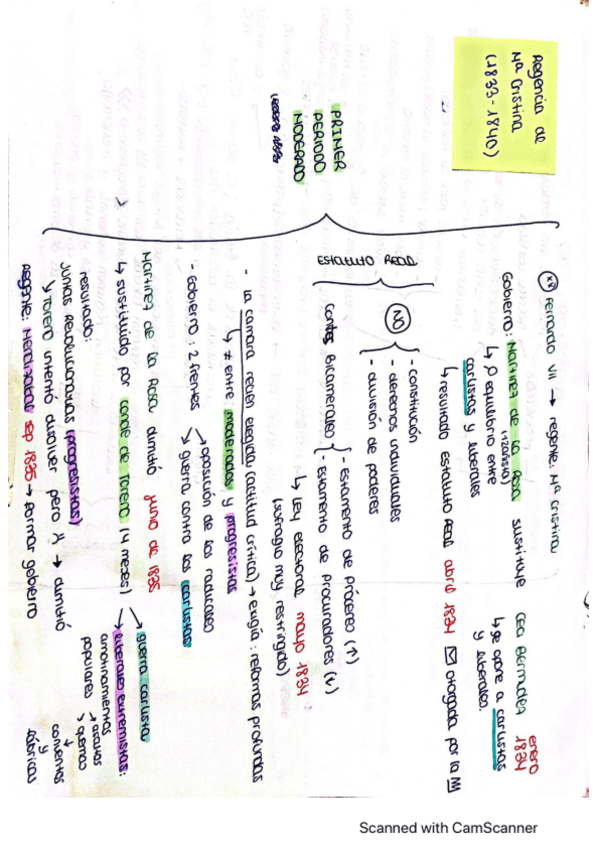 Regencia de
Mª Cristina
(1833-1840)
PRIMER
PERIODO
MODERADO
Fernando VII → regente: Mª Cristina
Gobierno: Martínez de la Rosa sustituye Cea Bermúdez enero
1834
↳ equilibrio entre
carlistas y liberales
↳ se opone a carlistas
y liberales.
↳ resultado Estatuto Real abril 1834 otorgada por la
ESTATUTO REAL
NO
- constitución
- derechos individuales
- división de poderes
Cortes Bicamerales
- estamento de próceres (↑)
- estamento de procuradores (↓)
↳ Ley electoral mayo 1834
(sufragio muy restringido)
- La cámara recien elegida (actitud crítica) → exigía: reformas profundas
↳ ≠ entre: moderados y progresistas
- Gobierno: 2 frentes
→ oposición de los radicales
↘ guerra contra los carlistas
Martínez de la Rosa dimitió junio de 1835
↳ sustituido por conde de Toreno (4 meses)
→ guerra carlista
→ liberales extremistas:
amotinamientos
populares
→ asaltos
↘ quema
conventos
y
fábricas
resultado:
Juntas Revolucionarias (progresistas)
↘ Toreno intentó disolver pero X → dimitió
Regente: Mendizábal sep 1835 → formar gobierno
Scanned with CamScanner